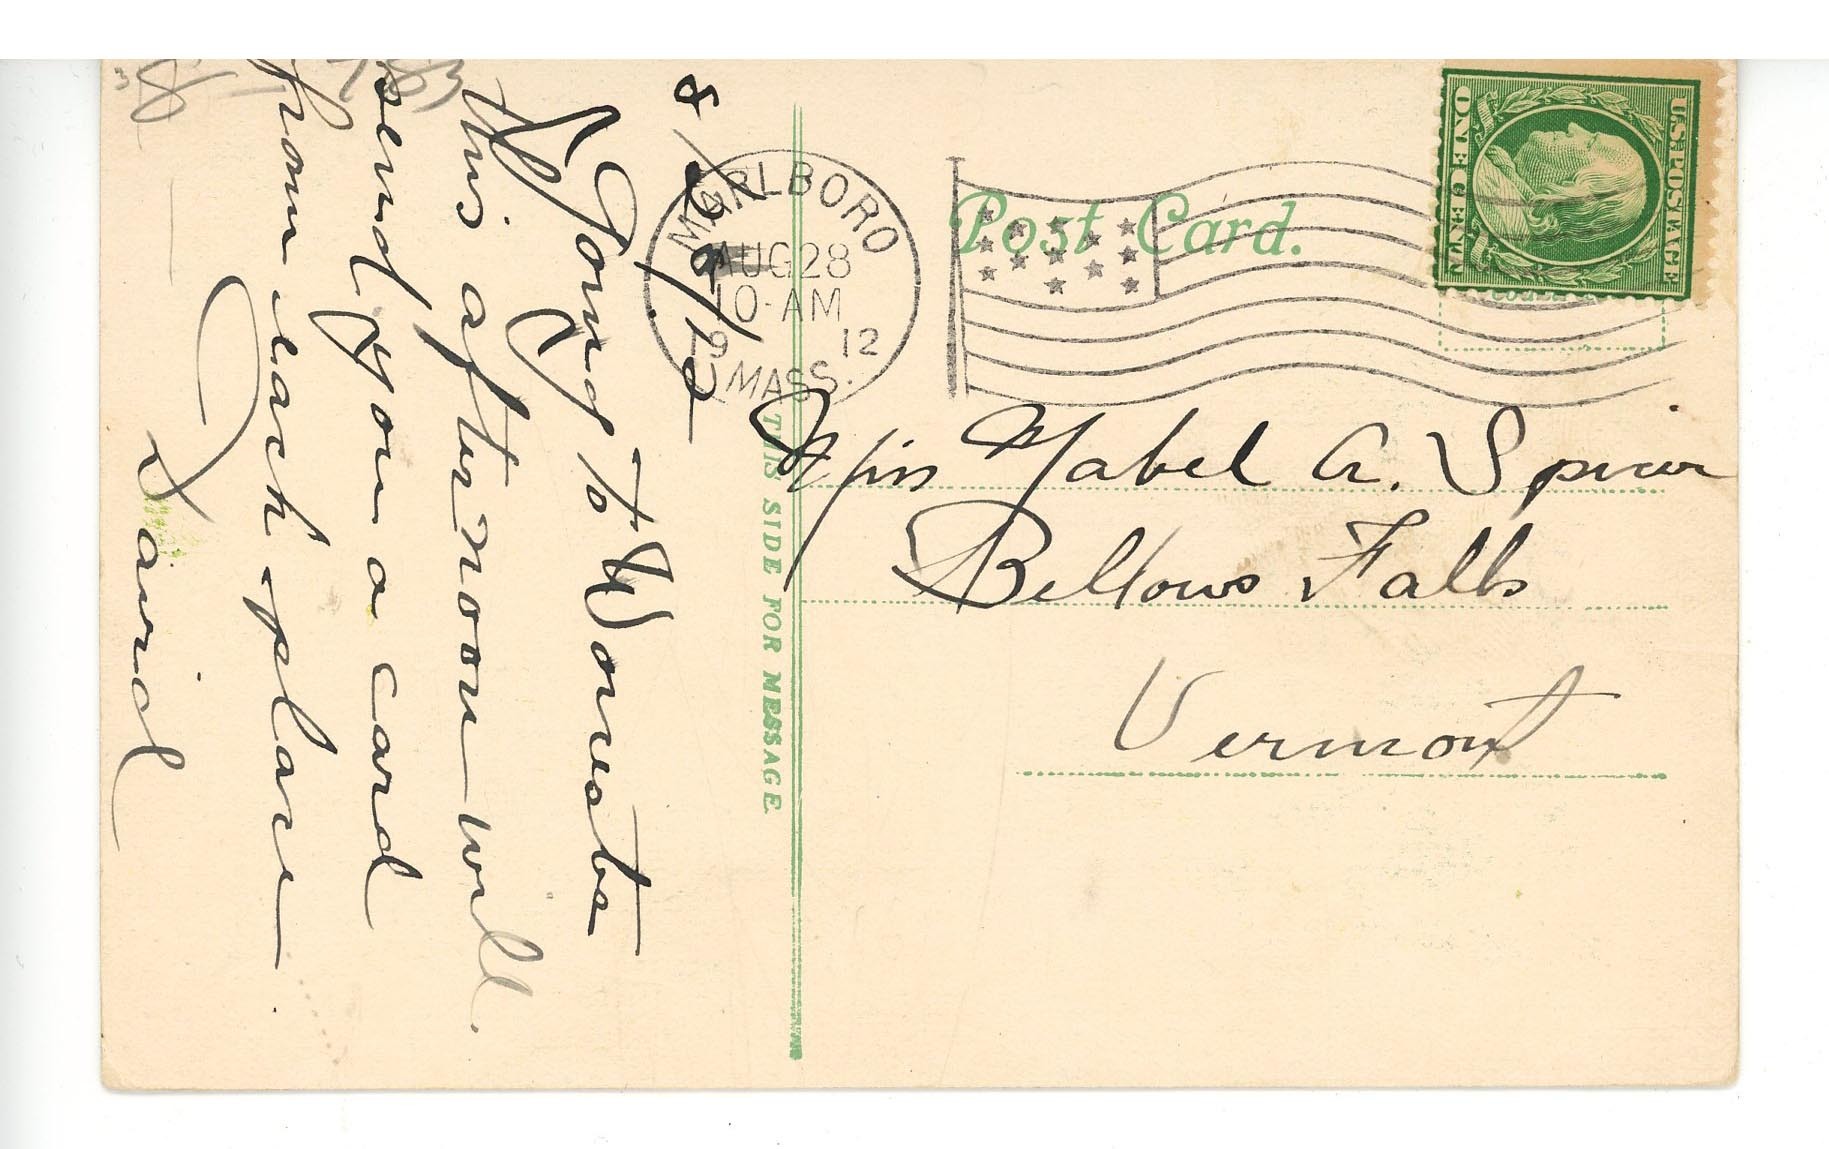 8/28/12
Going to Worcester
this afternoon will
send you a card
from each place
David
THIS SIDE FOR MESSAGE.
MARLBORO
AUG 28
10-AM
1912
MASS.
Post Card.
U.S. POSTAGE
ONE CENT
Miss Mabel A. Spicer
Bellows Falls
Vermont